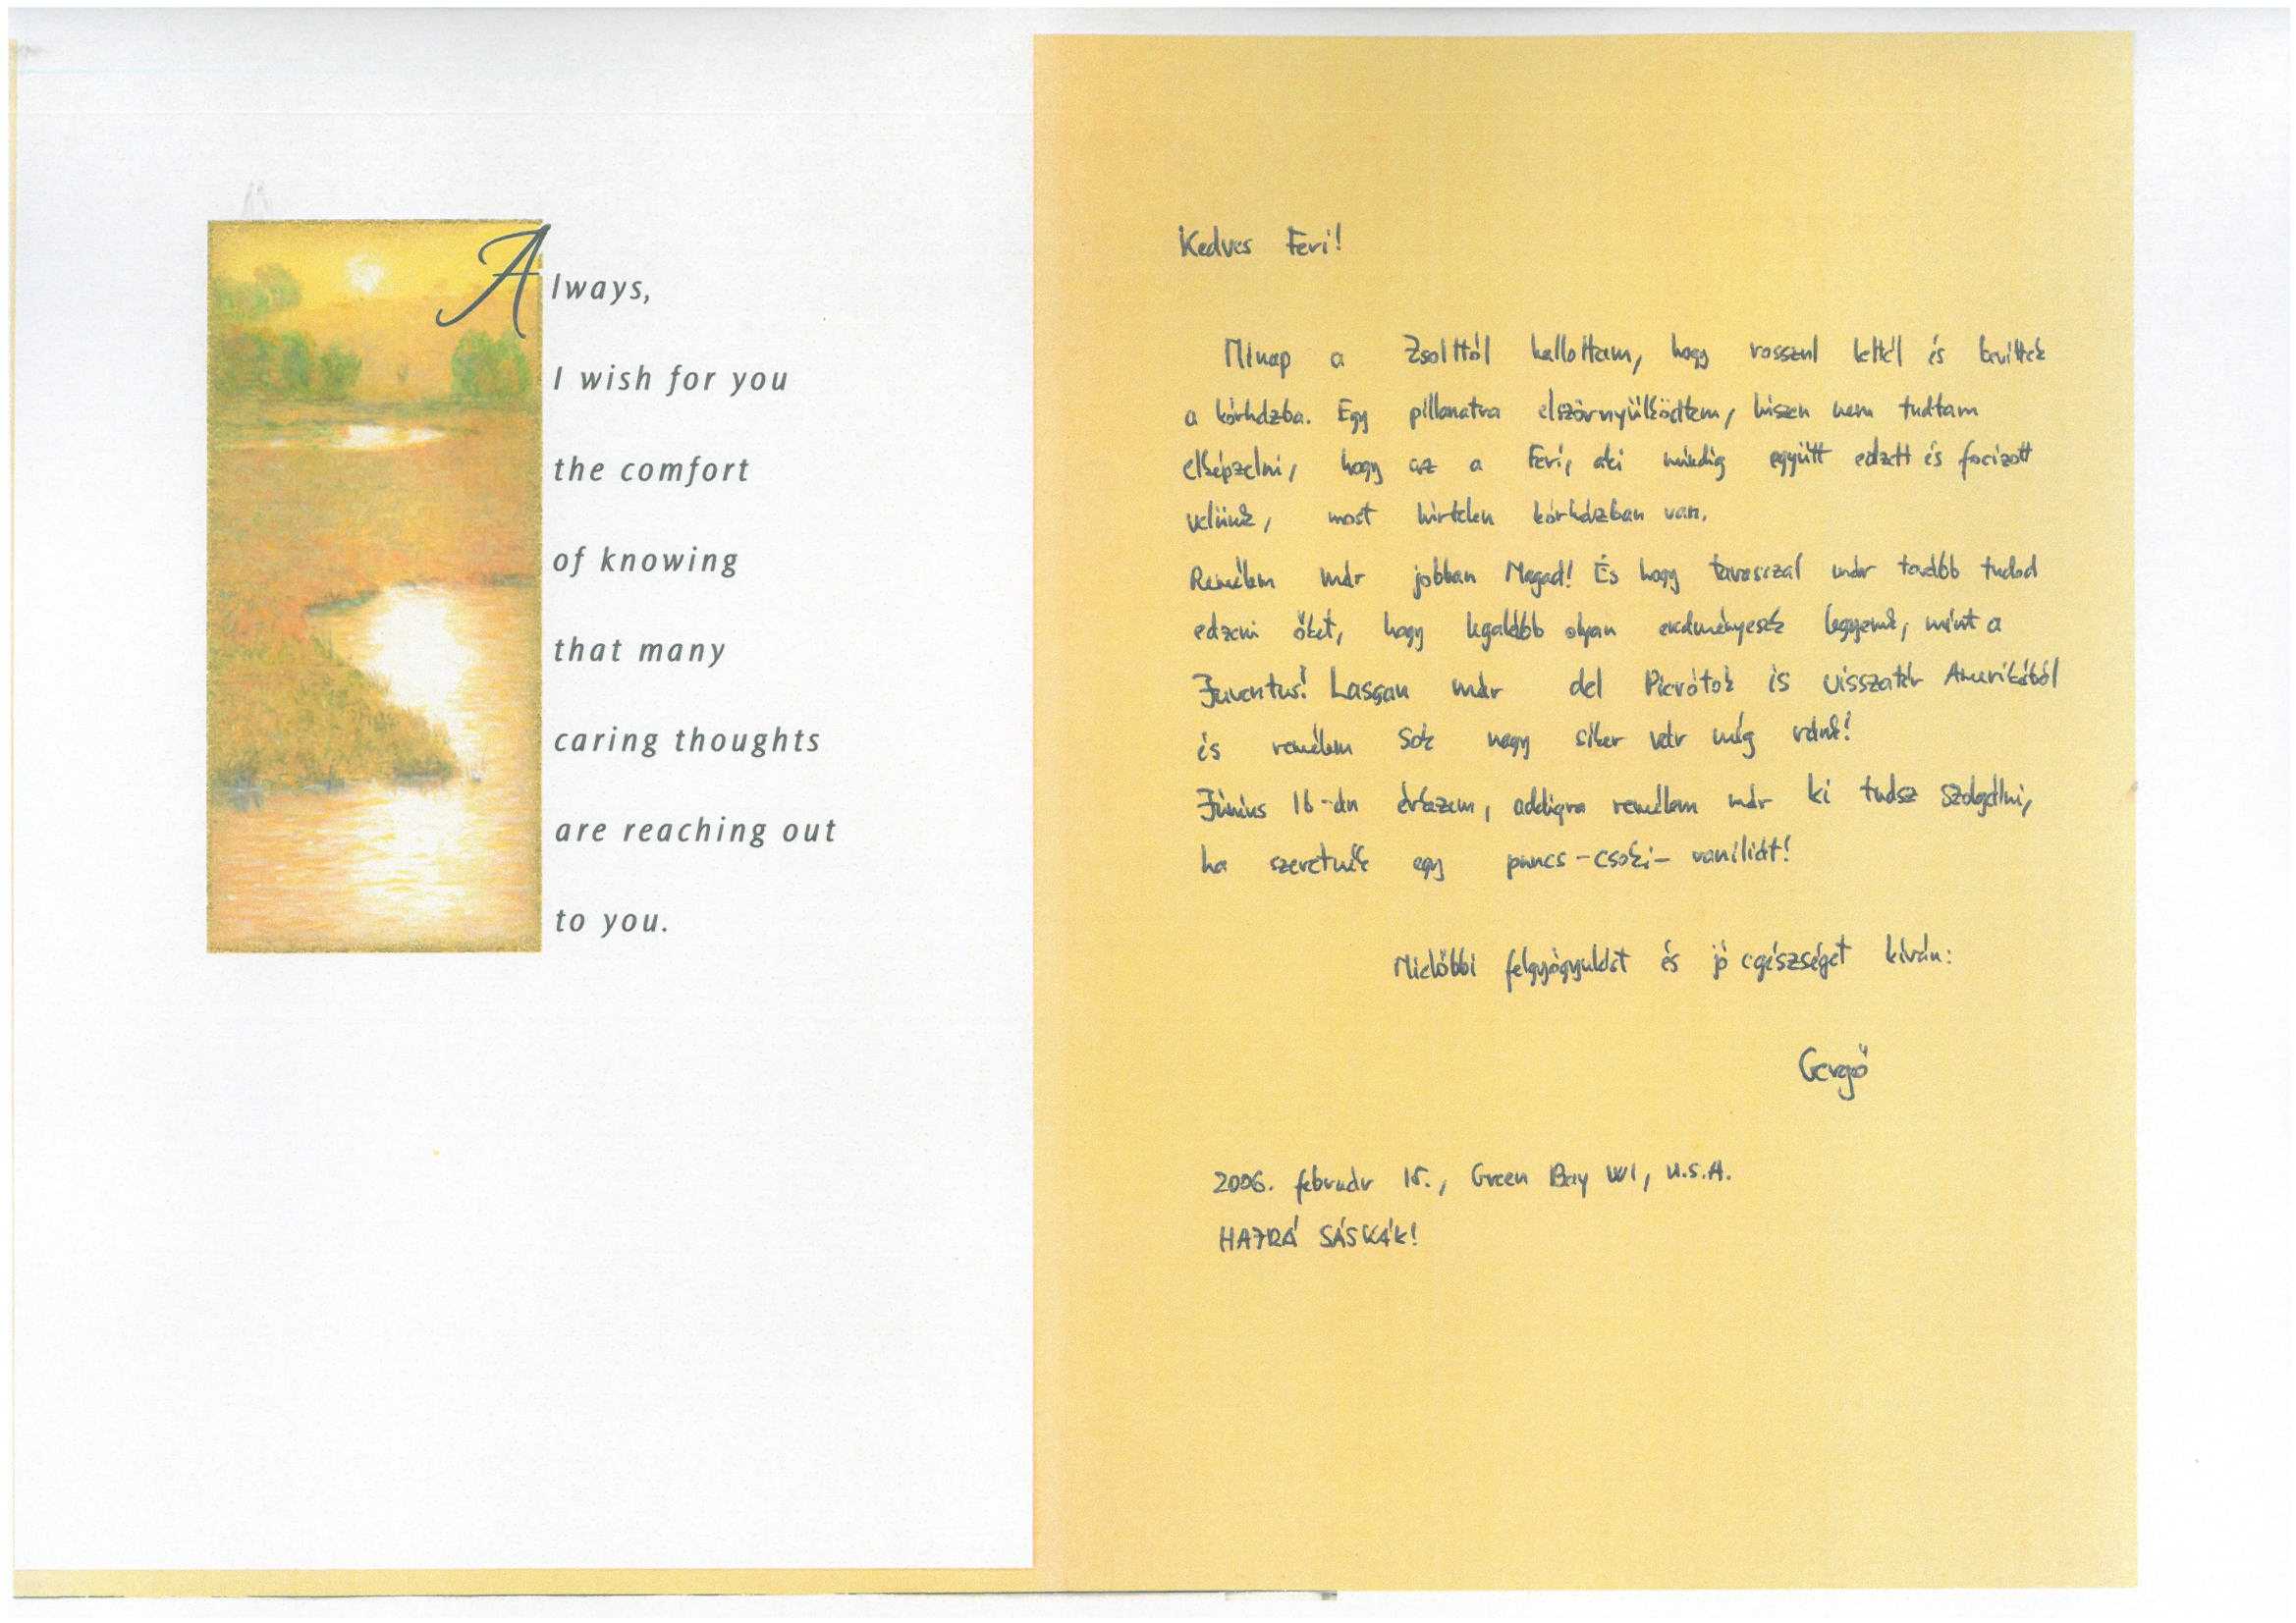 Always,
I wish for you
the comfort
of knowing
that many
caring thoughts
are reaching out
to you.
Kedves Feri!
Minap a Zsolttól hallottam, hogy rosszul lettél és bevittek
a kórházba. Egy pillanatra elszörnyülködtem, hiszen nem tudtam
elképzelni, hogy az a Feri, aki mindig együtt edzett és focizott
velünk, most hirtelen kórházban van.
Remélem már jobban Magad! És hogy tavasszal már tovább tudod
edzeni őket, hogy legalább olyan eredményesek legyenek, mint a
Juventus! Lassan már del Pierótok is visszatér Amerikából
és remélem sok nagy siker vár még ránk!
Június 16-án érkezem, addigra remélem már ki tudsz szolgálni,
ha szeretnék egy puncs-csoki-vaniliát!
Mielőbbi felgyógyulást és jó egészséget kíván:
Gergő
2006. február 15., Green Bay WI, U.S.A.
HAJRÁ SÁSKÁK!